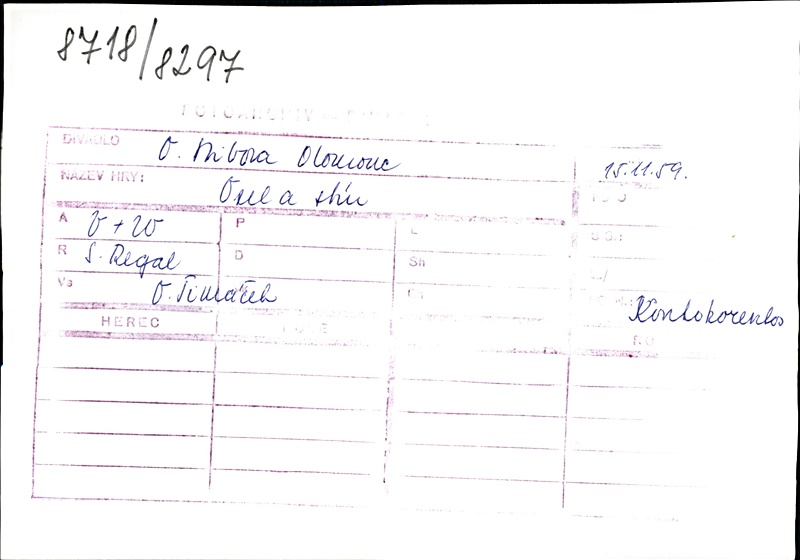 8718/8297
FOTOARCHIV
DIVADLO O. Stibora Olomouc 15.11.59.
NÁZEV HRY: Osel a stín
A V+W P L
R S. Regal D Sh
Vs O. Šimáček
Kontokorentos
HEREC ROLE